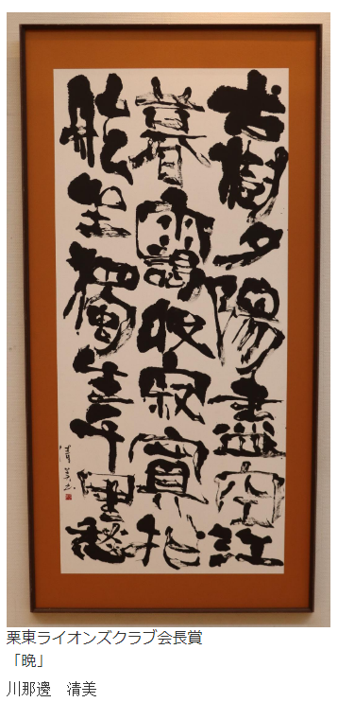 古樹夕陽盡空江
暮靄收寂寞扣
船坐獨生千里愁
栗東ライオンズクラブ会長賞
「晩」
川那邊　清美